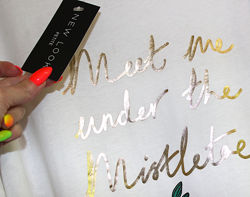 NEW LOOK
PETITE
Meet me
under the
Mistletoe